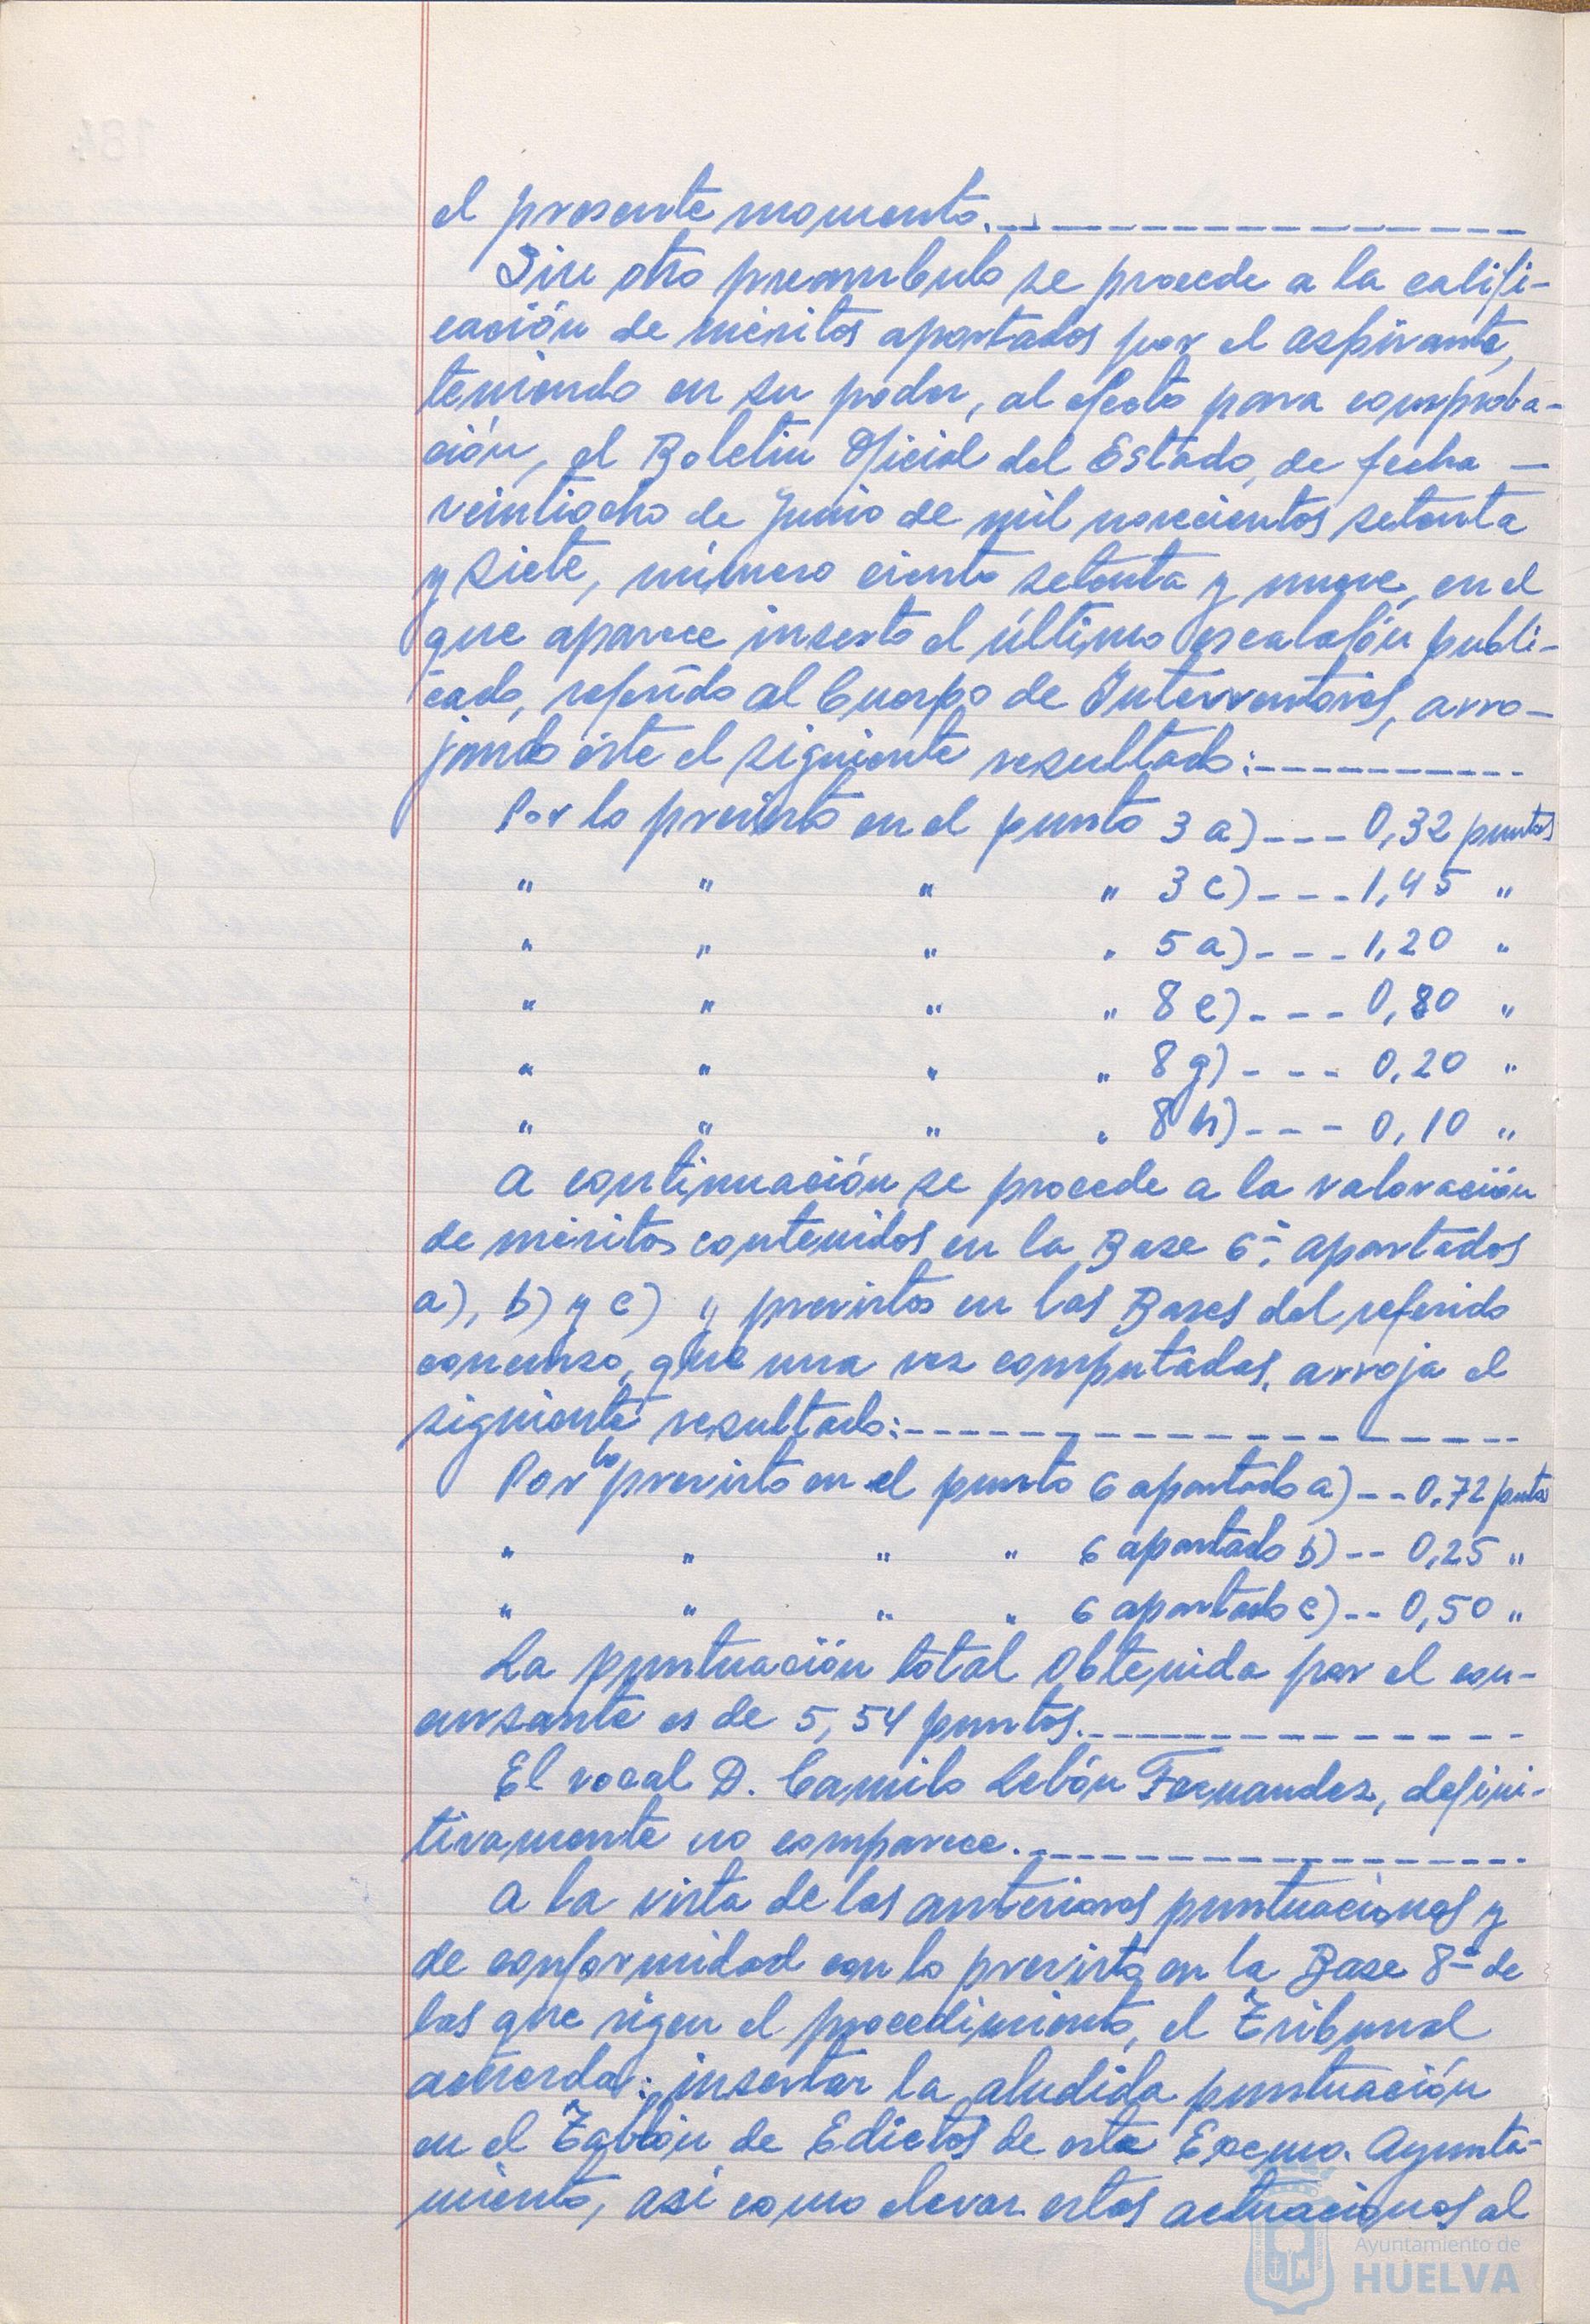 el presente momento.
Sin otro preambulo se procede a la califi-
cación de méritos aportados por el aspirante,
teniendo en su poder, al efecto para comproba-
ción, el Boletin Oficial del Estado, de fecha —
veintiocho de Junio de mil novecientos setenta
y siete, número ciento setenta y nueve, en el
que aparece inserto el último escalafón publi-
cado, referido al Cuerpo de Interventores, arro-
jando éste el siguiente resultado:----------
Por lo previsto en el punto 3 a)---0,32 puntos
" " " " 3 c)---1,45 "
" " " " 5 a)---1,20 "
" " " " 8 e)---0,80 "
" " " " 8 g)---0,20 "
" " " " 8 h)---0,10 "
A continuación se procede a la valoración
de méritos contenidos en la Base 6ª, apartados
a), b) y c) " previstos en las Bases del referido
concurso, que una vez computadas, arroja el
siguiente resultado:----------
Por lo previsto en el punto 6 apartado a)--0,72 puntos
" " " " 6 apartado b)--0,25 "
" " " " 6 apartado c)--0,50 "
La puntuación total obtenida por el con-
cursante es de 5,54 puntos.----------
El vocal D. Camilo Lebón Fernandez, defini-
tivamente no comparece.----------
A la vista de las anteriores puntuaciones y
de conformidad con lo previsto en la Base 8ª de
las que rigen el procedimiento, el Tribunal
acuerda: insertar la aludida puntuación
en el Tablón de Edictos de este Excmo. Ayunta-
miento, asi como elevar estas actuaciones al
Ayuntamiento de
HUELVA
184